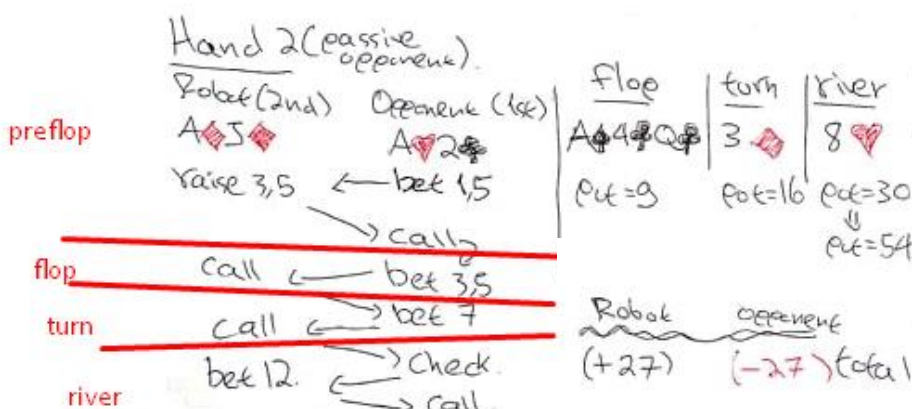 Hand 2 (passive
opponent).
Robot (2nd) Opponent (1st)
preflop
A♦J♦ A♥2♣
raise 3,5 ← bet 1,5
call
flop
call ← bet 3,5
turn
call ← bet 7
bet 12. check.
river
call
flop turn river
A♠4♣Q♣ 3♦ 8♥
pot=9 pot=16 pot=30
⇓
pot=54
Robot opponent
(+27) (-27) total